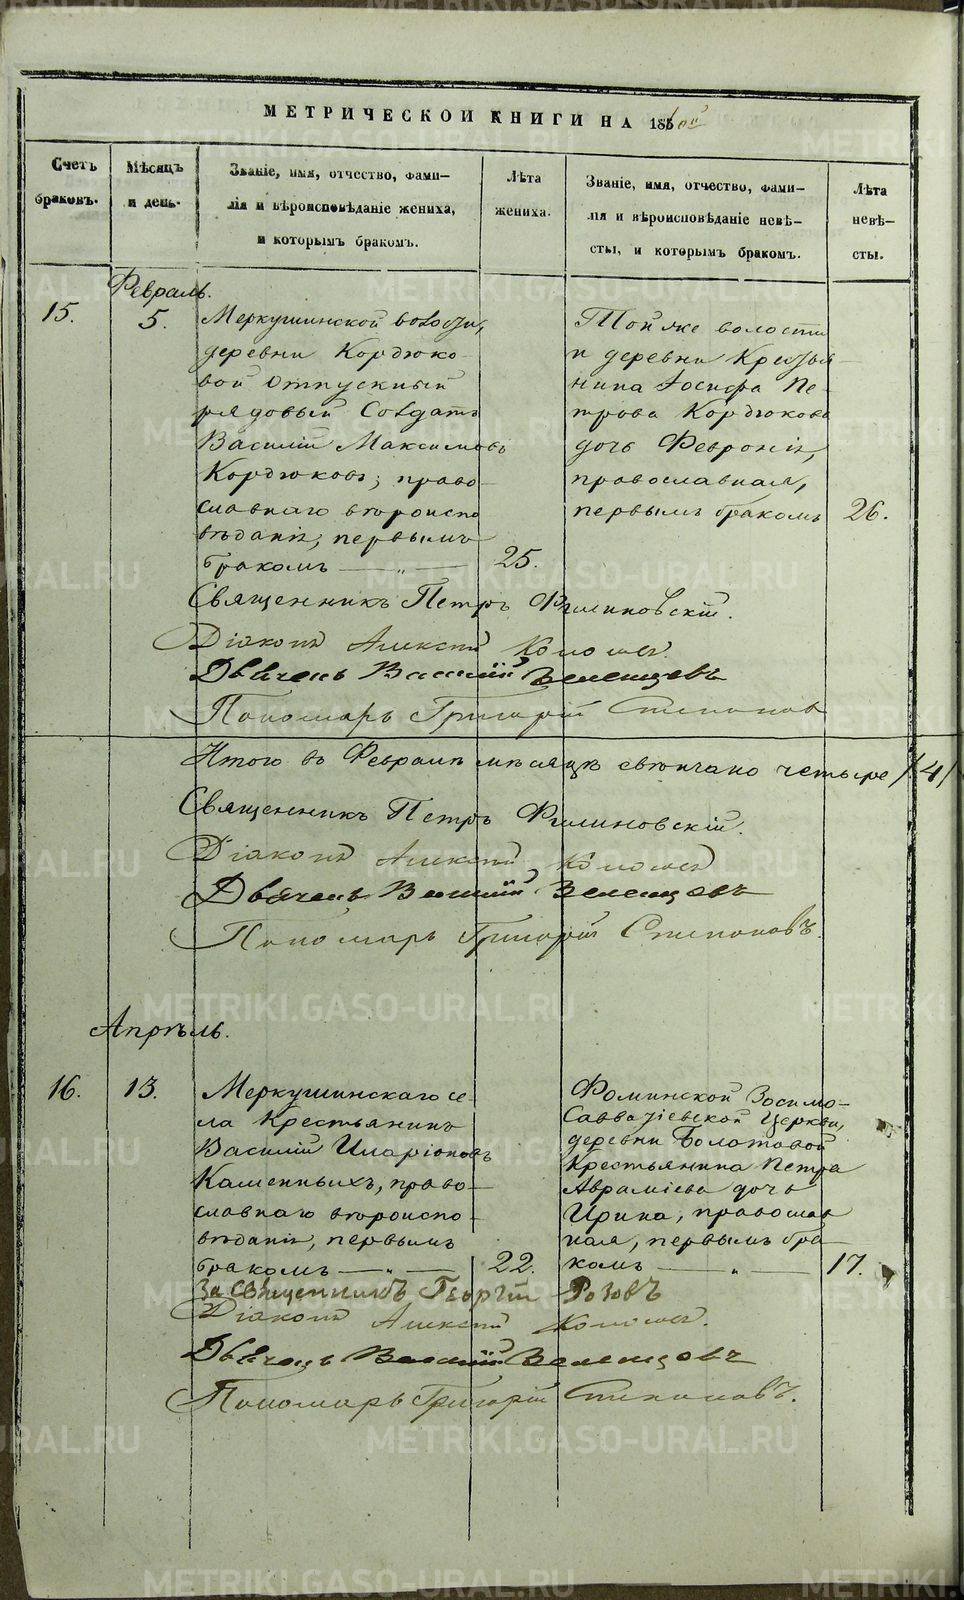 МЕТРИЧЕСКОЙ КНИГИ НА 186
Счетъ браковъ.
Мѣсяцъ и день.
Званіе, имя, отчество, фами-
лія и вѣроисповѣданіе жениха,
и которымъ бракомъ.
Лѣта жениха.
Званіе, имя, отчество, фами-
лія и вѣроисповѣданіе невѣ-
сты, и которымъ бракомъ.
Лѣта
невѣ-
сты.
Февраль.
15.
5.
Меркушинской волости,
деревни Кордюко-
вой отпускный
рядовый Солдатъ
Василій Максимовъ
Кордюковъ; право-
славнаго вѣроиспо
вѣданія; первымъ
бракомъ — „ —
25.
Той же волости
и деревни Крестья-
нина Іосифа Пе-
трова Кордюкова
дочь Февронія,
православная,
первымъ бракомъ
26.
Священникъ Петръ Филиновскій.
Діаконъ Алексѣй
Дьячекъ Василій Зеленцовъ
Пономарь Григорій Степановъ
Итого въ Февралѣ мѣсяцѣ свѣнчано четыре /4/
Священникъ Петръ Филиновскій.
Діаконъ Алексѣй
Дьячекъ Василій Зеленцовъ
Пономарь Григорій Степановъ.
Апрѣль.
16.
13.
Меркушинскаго се-
ла Крестьянинъ
Василій Иларіоновъ
Каменныхъ, право-
славнаго вѣроиспо-
вѣданія, первымъ
бракомъ — „ —
22.
Фоминской Зосимо-
Савватіевской Церкви,
деревни Болотовой
Крестьянина Петра
Авраміева дочь
Ирина, православ
ная, первымъ бра-
комъ — „ —
17.
За Священникъ Георгій Розовъ
Діаконъ Алексѣй
Дьячекъ Василій Зеленцовъ
Пономарь Григорій Степановъ.
METRIKI.GASO-URAL.RU